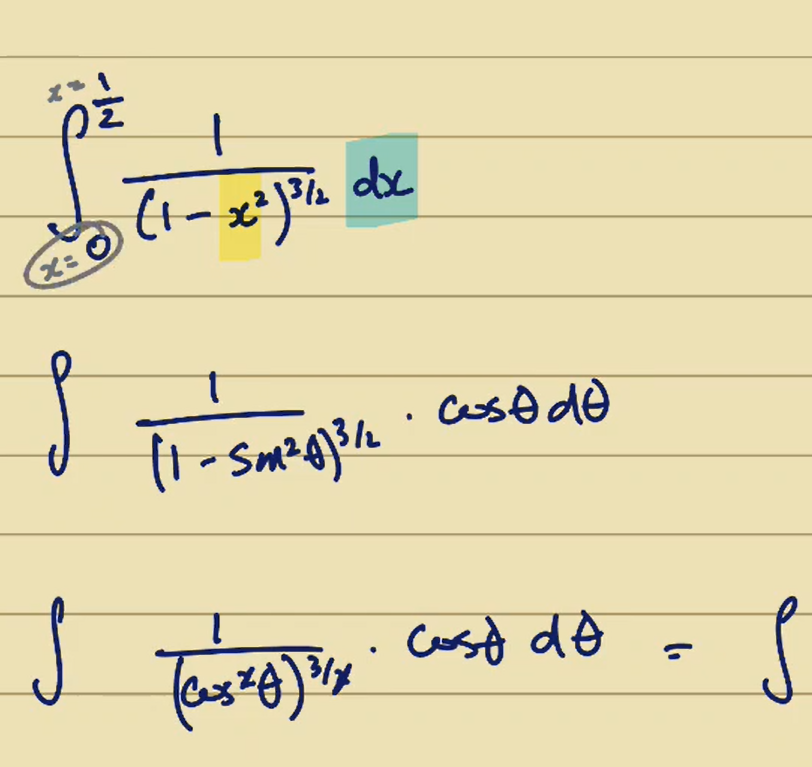 ∫_{x=0}^{x=1/2} 1/(1 - x²)^{3/2} dx
∫ 1/(1 - sin²θ)^{3/2} · cosθ dθ
∫ 1/(cos²θ)^{3/2} · cosθ dθ = ∫